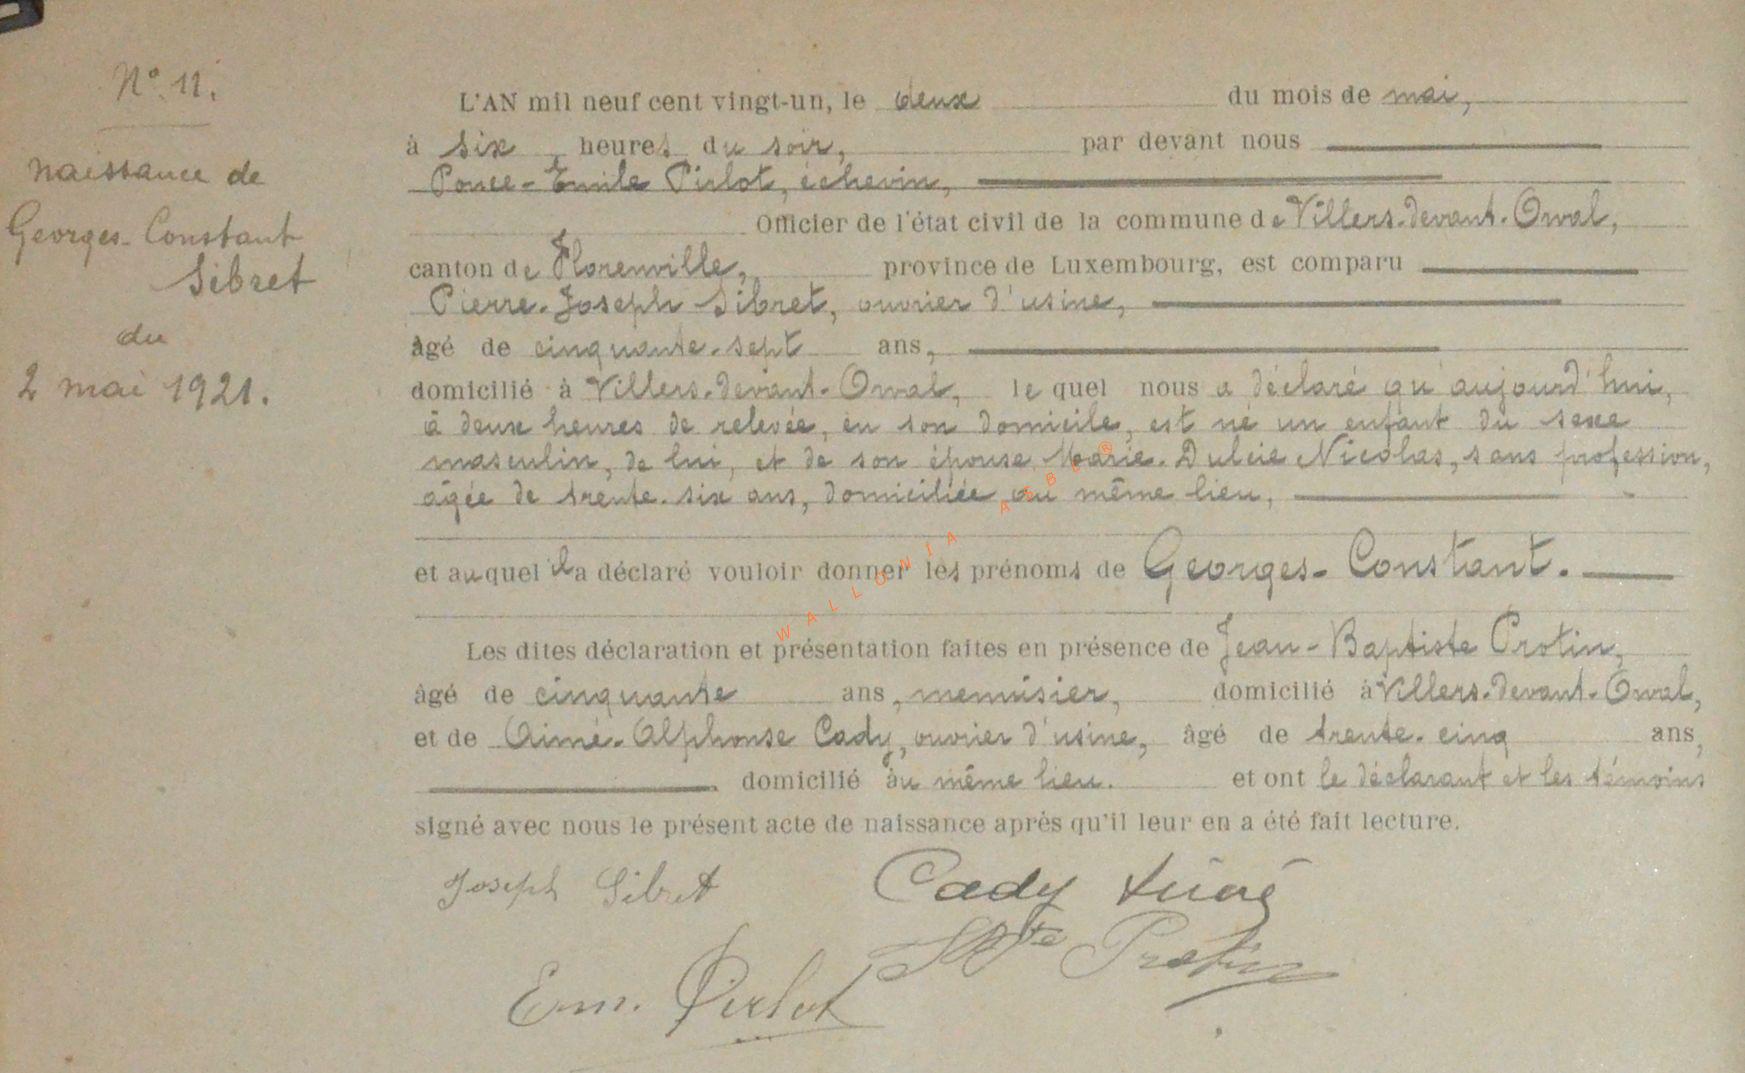 N° 11.
naissance de
Georges-Constant
Sibret
du
2 mai 1921.
L'AN mil neuf cent vingt-un, le deux du mois de mai,
à six heures du soir, par devant nous
Ponce-Emile Pirlot, échevin,
Officier de l'état civil de la commune de Villers-devant-Orval,
canton de Florenville, province de Luxembourg, est comparu
Pierre-Joseph Sibret, ouvrier d'usine,
âgé de cinquante-sept ans,
domicilié à Villers-devant-Orval, lequel nous a déclaré qu'aujourd'hui,
à deux heures de relevée, en son domicile, est né un enfant du sexe
masculin, de lui, et de son épouse Marie-Dulcie Nicolas, sans profession,
âgée de trente-six ans, domiciliée au même lieu,
et auquel il a déclaré vouloir donner les prénoms de Georges-Constant.
Les dites déclaration et présentation faites en présence de Jean-Baptiste Protin,
âgé de cinquante ans, menuisier, domicilié à Villers-devant-Orval,
et de Aimé-Alphonse Cady, ouvrier d'usine, âgé de trente-cinq ans,
domicilié au même lieu. et ont le déclarant et les témoins
signé avec nous le présent acte de naissance après qu'il leur en a été fait lecture.
Joseph Sibret Cady Aimé
Bte Protin
Em. Pirlot
WALLONIA ASBL ®